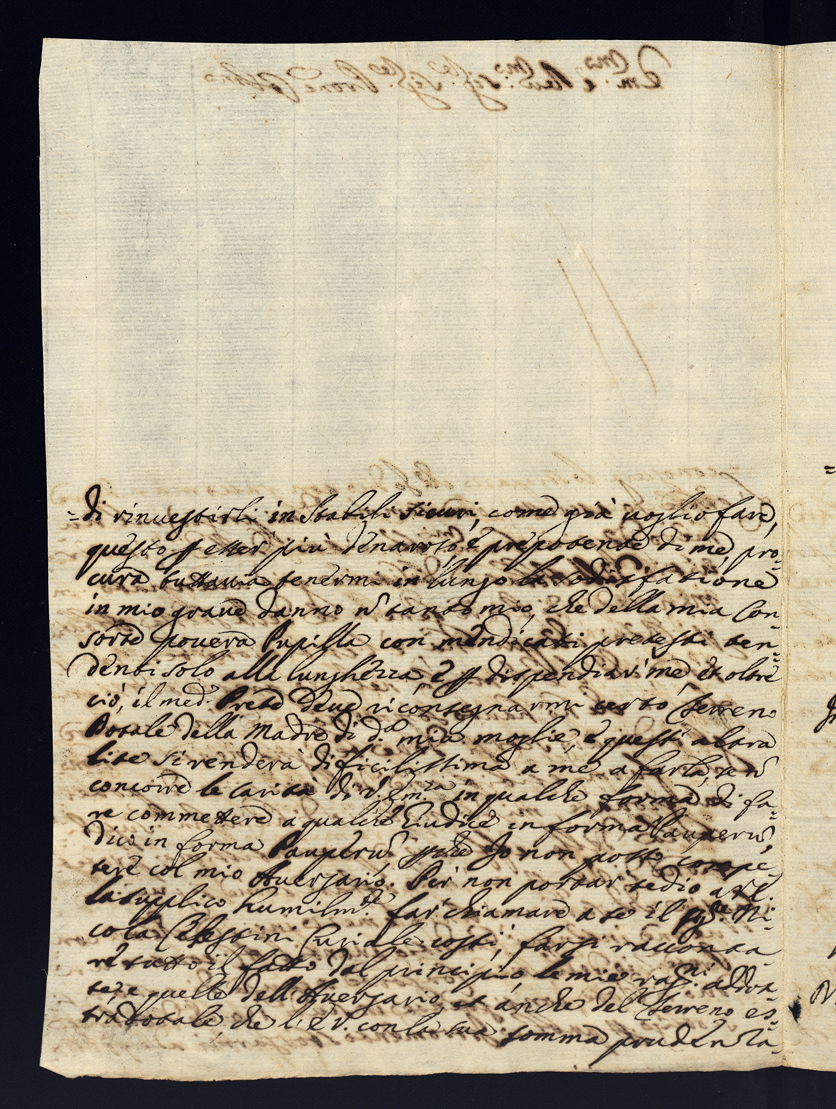 =di rinuestirli in stabili sicuri, come già uoglio fare,
questo esser più denaroso, e prepotente di me, pro=
cura tuttauia tenermi in lungo la sodisfatione
in mio graue danno ñ tanto mio, che della mia Con=
sorte pouera Pupilla con mendicati pretesti ten=
denti solo alla lunghezza, e dispendiarmi me, et oltre
ciò, il med.º Prete deue riconsegnarmi certo terreno
Dotale della Madre di d.ª mia moglie, e questa altra
lite si renderà dificilissima a me a farla, se ñ
concorre la carità di V. Em.za in qualche forma di fa=
re commettere a qualche Giudice in forma Pauperũ
dico in forma Pauperũ perche Io non posso compe=
tere col mio Auersario. Per non portar tedio a V.E.
la supplico humilm.te far chiamare a se il Sig.re Ni=
cola Celestini Curiale costì, farsi racconta=
re tutto il fatto dal principio, le mie rag.ni addot=
te, e quelle dell'Auersario, et anche del terreno es=
tradotale, che l'E.V. con la sua somma prudenza=